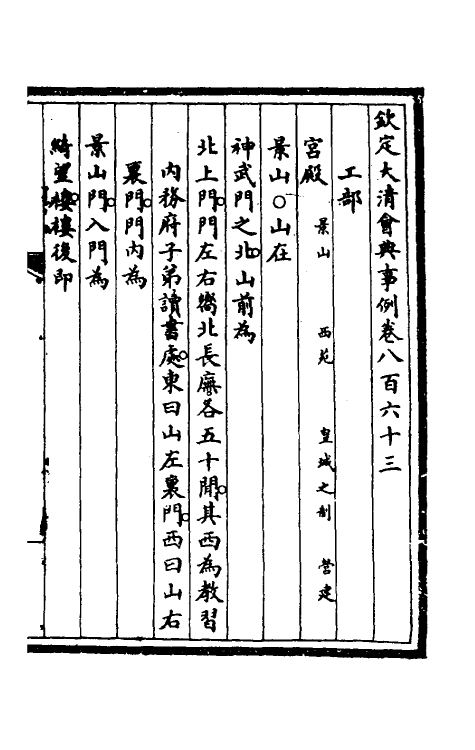 欽定大清會典事例卷八百六十三
工部
宮殿 景山 西苑 皇城之制 營建
景山〇山在
神武門之北。山前為
北上門。門左右嚮北長廡各五十間。其西為教習
內務府子弟讀書處。東曰山左裏門。西曰山右
裏門。門內為
景山門。入門為
綺望樓。樓後即